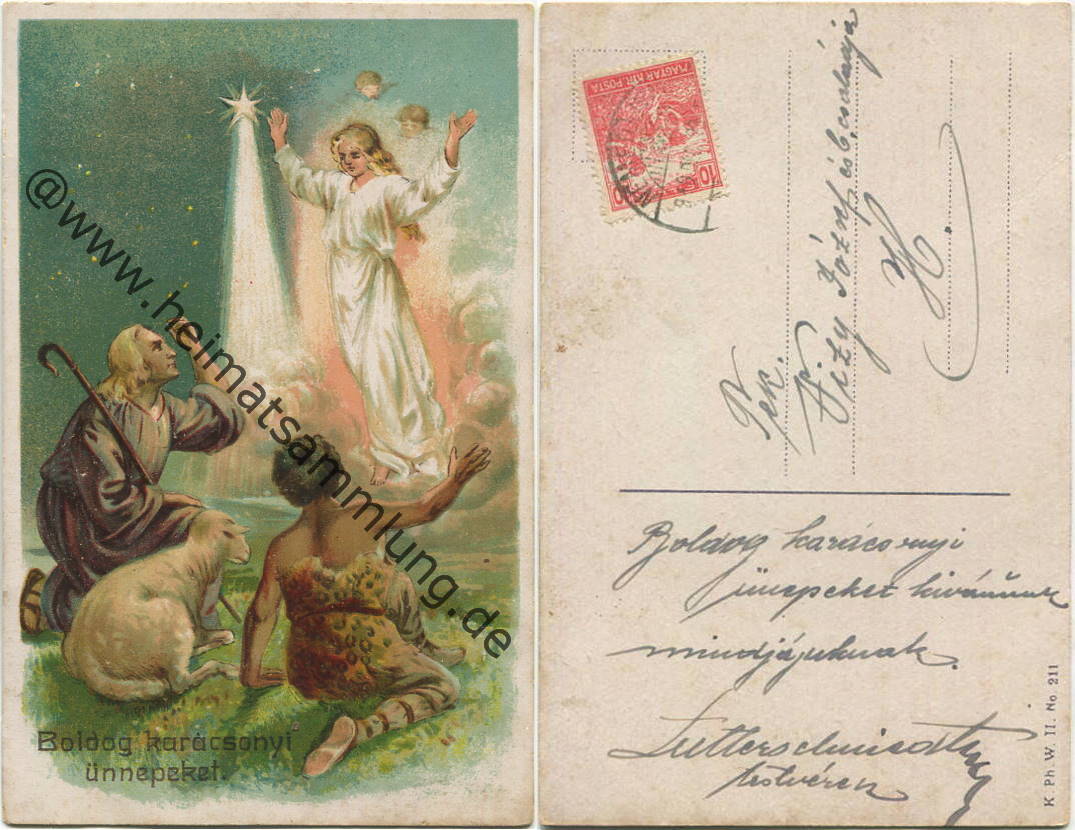 @www.heimatsammlung.de
Boldog karácsonyi
ünnepeket.
MAGYAR KIR. POSTA
10
Tek.
Vizy József és b. csaladja
H.
Boldog karácsonyi
ünepeket kivánunk
mindjájuknak.
Lutterschmied
testvérek
K. Ph. W. II. No. 211